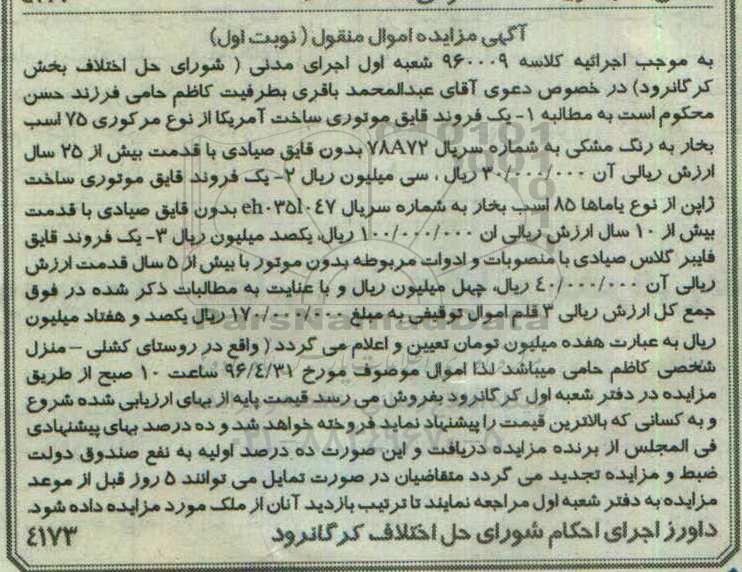 آگهی مزایده اموال منقول (نوبت اول)
به موجب اجرائیه کلاسه ۹۶۰۰۰۹ شعبه اول اجرای مدنی ( شورای حل اختلاف بخش
کرگانرود) در خصوص دعوی آقای عبدالمحمد باقری بطرفیت کاظم حامی فرزند حسن
محکوم است به مطالبه ۱- یک فروند قایق موتوری ساخت آمریکا از نوع مرکوری ۷۵ اسب
بخار به رنگ مشکی به شماره سریال ۷۸۸۷۲ بدون قایق صیادی با قدمت بیش از ۲۵ سال
ارزش ریالی آن ۳۰/۰۰۰/۰۰۰ ریال ، سی میلیون ریال ۲- یک فروند قایق موتوری ساخت
ژاپن از نوع یاماها ۸۵ اسب بخار به شماره سریال eh۰۳۵l۰۴۷ بدون قایق صیادی با قدمت
بیش از ۱۰ سال ارزش ریالی ان ۱۰۰/۰۰۰/۰۰۰ ریال، یکصد میلیون ریال ۳- یک فروند قایق
فایبر گلاس صیادی با منصوبات و ادوات مربوطه بدون موتور با بیش از ۵ سال قدمت ارزش
ریالی آن ۴۰/۰۰۰/۰۰۰ ریال، چهل میلیون ریال و با عنایت به مطالبات ذکر شده در فوق
جمع کل ارزش ریالی ۳ قلم اموال توقیفی به مبلغ ۱۷۰/۰۰۰/۰۰۰ ریال یکصد و هفتاد میلیون
ریال به عبارت هفده میلیون تومان تعیین و اعلام می گردد ( واقع در روستای کشلی – منزل
شخصی کاظم حامی میباشد لذا اموال موصوف مورخ ۹۶/۴/۳۱ ساعت ۱۰ صبح از طریق
مزایده در دفتر شعبه اول کرگانرود بفروش می رسد قیمت پایه از بهای ارزیابی شده شروع
و به کسانی که بالاترین قیمت را پیشنهاد نماید فروخته خواهد شد و ده درصد بهای پیشنهادی
فی المجلس از برنده مزایده دریافت و این صورت ده درصد اولیه به نفع صندوق دولت
ضبط و مزایده تجدید می گردد متقاضیان در صورت تمایل می توانند ۵ روز قبل از موعد
مزایده به دفتر شعبه اول مراجعه نمایند تا ترتیب بازدید آنان از ملک مورد مزایده داده شود.
داورز اجرای احکام شورای حل اختلاف کرگانرود
۴۱۷۳
ParsNamadData